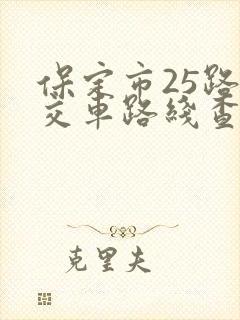 保定市25路
交车路线查
克里夫